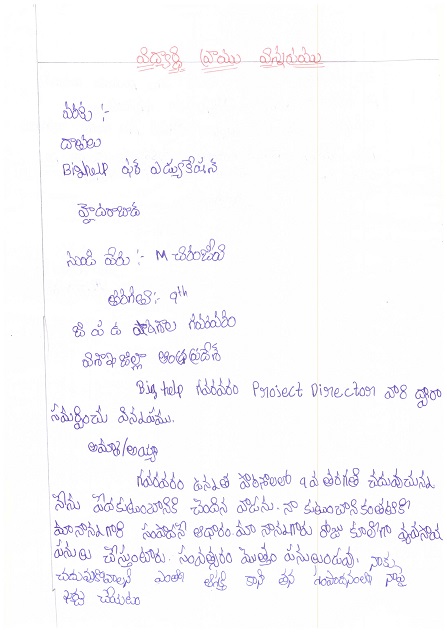 విద్యార్థి వ్రాయు విన్నపము
వరకు :-
దాతలు
Bighelp ఫర్ ఎడ్యుకేషన్
హైదరాబాద్
నుండి పేరు :- M చిరంజీవి
తరగతి :- 9th
జి ప ఉ పాఠశాల గవరవరం
విశాఖజిల్లా ఆంధ్రప్రదేశ్
Bighelp గవరవరం Project Director వారి ద్వారా
సమర్పించు విన్నపము.
అమ్మా/అయ్యా
గవరవరం ఉన్నత పాఠశాలలో 9వ తరగతి చదువుచున్న
నేను పేదకుటుంబానికి చెందిన వాడను. నా కుటుంబానికంతటికీ
మా నాన్నగారి సంపాదనే ఆధారం. మా నాన్నగారు రోజు కూలీగా వ్యవసాయ
పనులు చేస్తుంటారు. సంవత్సరం మొత్తం పనులుండవు. నాకు
చదువుకోవాలని ఎంతో ఆసక్తి కానీ తన సంపాదనలో నాపై
ఖర్చు చేయుటం